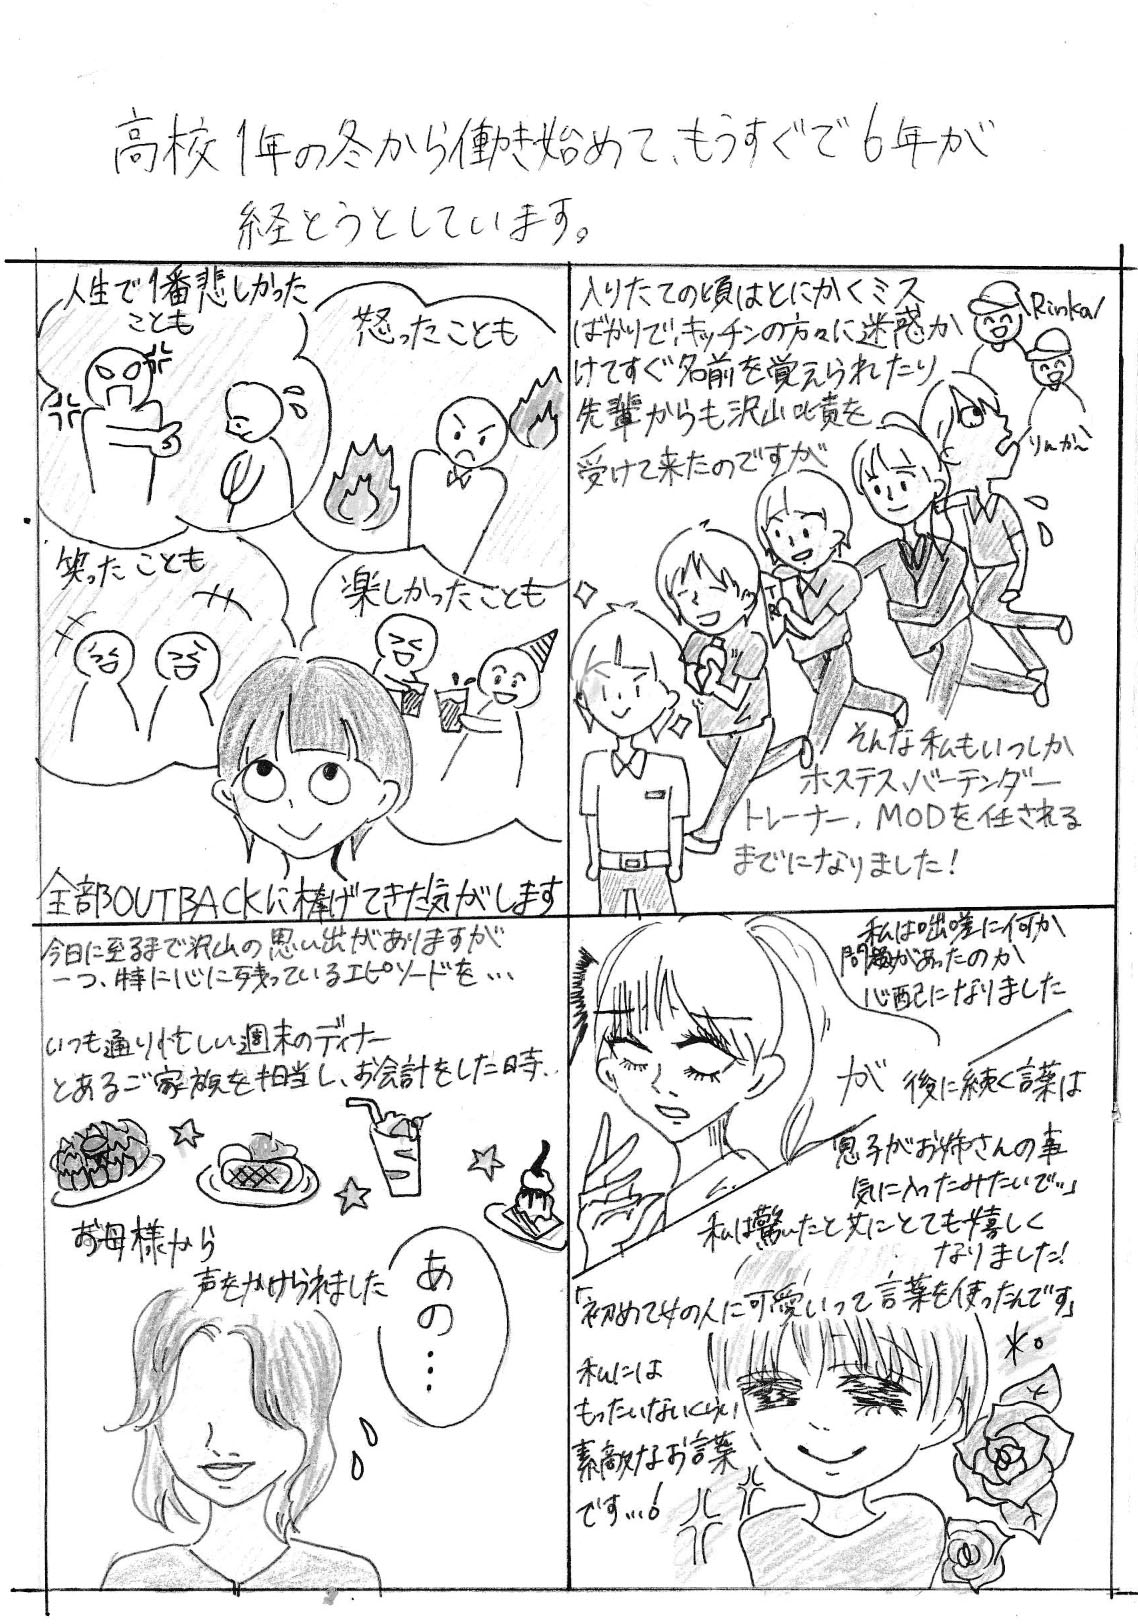 高校1年の冬から働き始めて、もうすぐで6年が
経とうとしています。
人生で1番悲しかった
ことも
怒ったことも
笑ったことも
楽しかったことも
全部OUTBACKに捧げてきた気がします
入りたての頃はとにかくミス
ばかりで、キッチンの方々に迷惑か
けてすぐ名前を覚えられたり
先輩からも沢山叱責を
受けて来たのですが
Rinka
りんか〜
TR
そんな私もいつしか
ホステス、バーテンダー
トレーナー、MODを任される
までになりました!
今日に至るまで沢山の思い出がありますが
一つ、特に心に残っているエピソードを…
いつも通り忙しい週末のディナー
とあるご家族を担当し、お会計をした時、
お母様から
声をかけられました
あの…
私は咄嗟に何か
問題があったのか
心配になりました
が 後に続く言葉は
息子がお姉さんの事
気に入ったみたいで…」
私は驚いたと共にとても嬉しく
なりました!
「初めて女の人に可愛いって言葉を使ったんです」
私には
もったいないくらい
素敵なお言葉
です…!